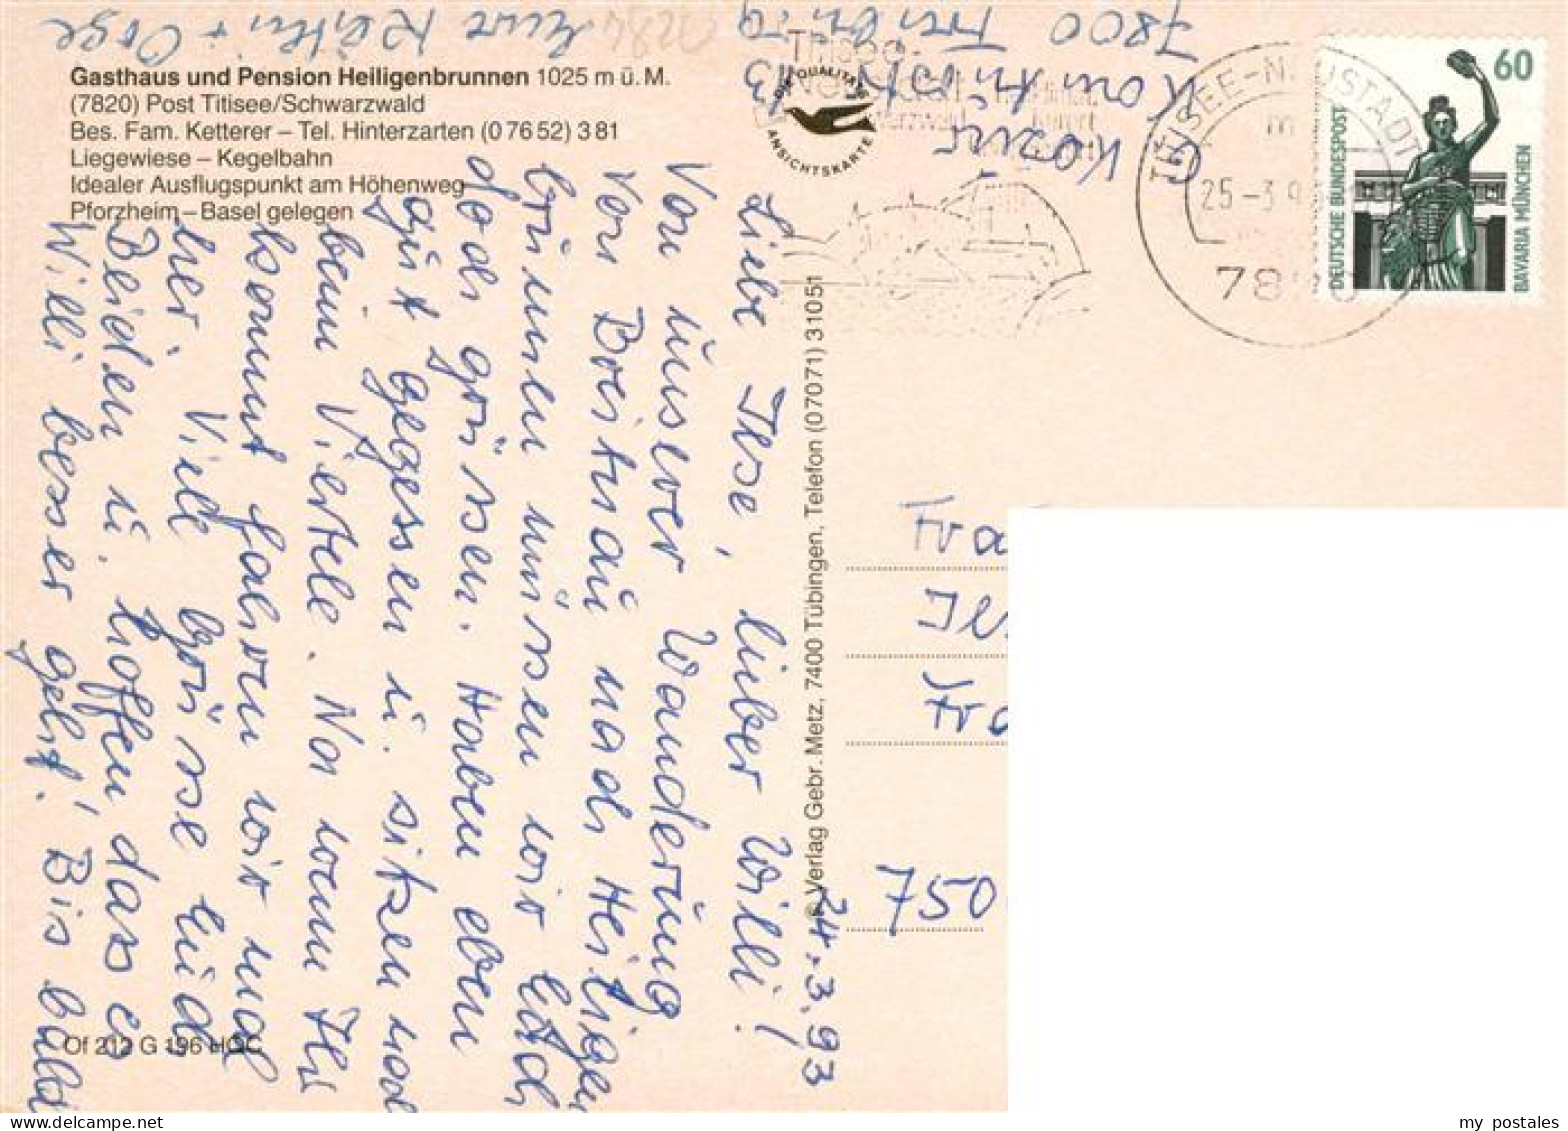 Gasthaus und Pension Heiligenbrunnen 1025 m ü. M.
(7820) Post Titisee/Schwarzwald
Bes. Fam. Ketterer – Tel. Hinterzarten (0 76 52) 3 81
Liegewiese – Kegelbahn
Idealer Ausflugspunkt am Höhenweg
Pforzheim – Basel gelegen
QUALITÄTS
ANSICHTSKARTE
TITISEE-NEUSTADT
25-3.9
7820
60
DEUTSCHE BUNDESPOST
BAVARIA MÜNCHEN
24.3.93
Liebe Ilse, lieber Willi!
Von unserer Wanderung
von Breitnau nach Heiligen
brunnen müssen wir Euch
doch grüssen. Haben eben
gut gegessen u. sitzen noch
beim Viertele. Na wenn Ihr
kommt fahren wir mal
hier. Viele Grüsse Euch
Beiden u. hoffen, dass es
Willi besser geht! Bis bald
Eure Käthi +
7800 Freiburg
© Verlag Gebr. Metz, 7400 Tübingen, Telefon (07071) 31051
Fra
Ils
Fra
750
Of 212 G 196 HGC
my postales